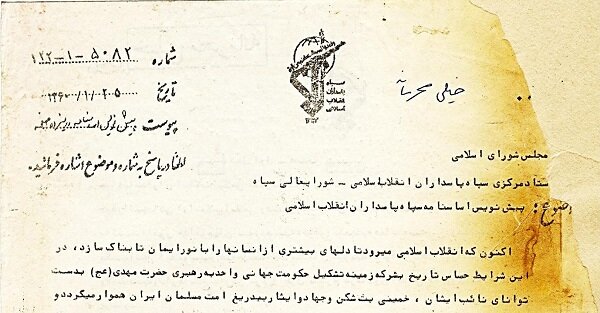 شماره ۱۲۲-۱-۵۰۸۲
تاریخ
پیوست پیش نویس اساسنامه
لطفا در پاسخ به شماره و موضوع اشاره فرمائید.
سپاه
پاسداران
انقلاب
اسلامی
خیلی محرمانه
مجلس شورای اسلامی
ستاد مرکزی سپاه پاسداران انقلاب اسلامی - شورایعالی سپاه
موضوع: پیش نویس اساسنامه سپاه پاسداران انقلاب اسلامی
اکنون که انقلاب اسلامی میرود تا دلهای بیشتری از انسانها را با نور ایمان تابناک سازد، در
این شرایط حساس تاریخ بشر که زمینه تشکیل حکومت جهانی واحد به رهبری حضرت مهدی (عج) بدست
توانای نائب ایشان، خمینی بت شکن و جهاد و ایثار بیدریغ امت مسلمان ایران هموار میگردد و